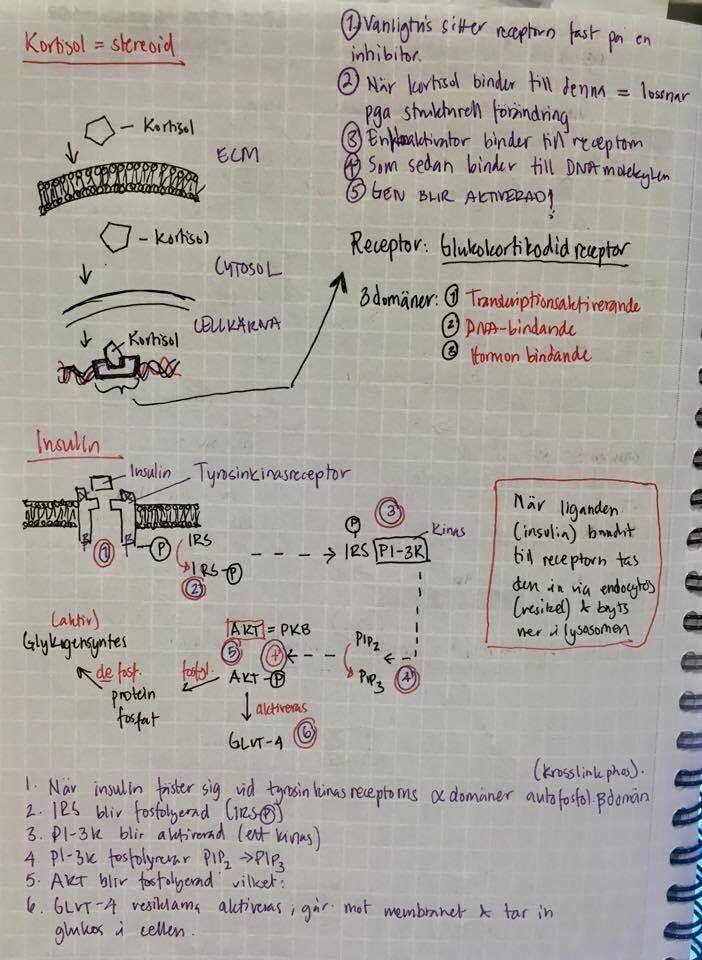 Kortisol = stereoid
Kortisol
ECM
Kortisol
CYTOSOL
CELLKÄRNA
Kortisol
① Vanligtvis sitter receptorn fast på en
inhibitor.
② När kortisol binder till denna = lossnar
pga strukturell förändring
③ En koaktivator binder till receptorn
④ Som sedan binder till DNA molekylen
⑤ GEN BLIR AKTIVERAD!
Receptor: Glukokortikodid receptor
3 domäner: ① Transkriptionsaktiverande
② DNA-bindande
③ Hormon bindande
Insulin
Insulin
Tyrosinkinasreceptor
①
P
IRS
IRS-P
②
P
③
Kinas
IRS PI-3K
När liganden
(insulin) bundit
till receptorn tas
den in via endocytos
(vesikel) & bryts
ner i lysosomen
PIP2
PIP3
④
AKT = PKB
⑤ +
AKT-P
fosfol.
aktiveras
GLUT-4 ⑥
protein
fosfat
defosf.
(aktiv)
Glykogensyntes
(krosslink phos).
1. När insulin fäster sig vid tyrosinkinasreceptorns α domäner autofosfol. βdomän
2. IRS blir fosfolyerad (IRSP)
3. PI-3K blir aktiverad (ett kinas)
4 PI-3K fosfolyrerar PIP2 → PIP3
5. AKT blir fosfolyerad vilket:
6. GLUT-4 vesiklarna aktiveras, går mot membranet & tar in
glukos i cellen.